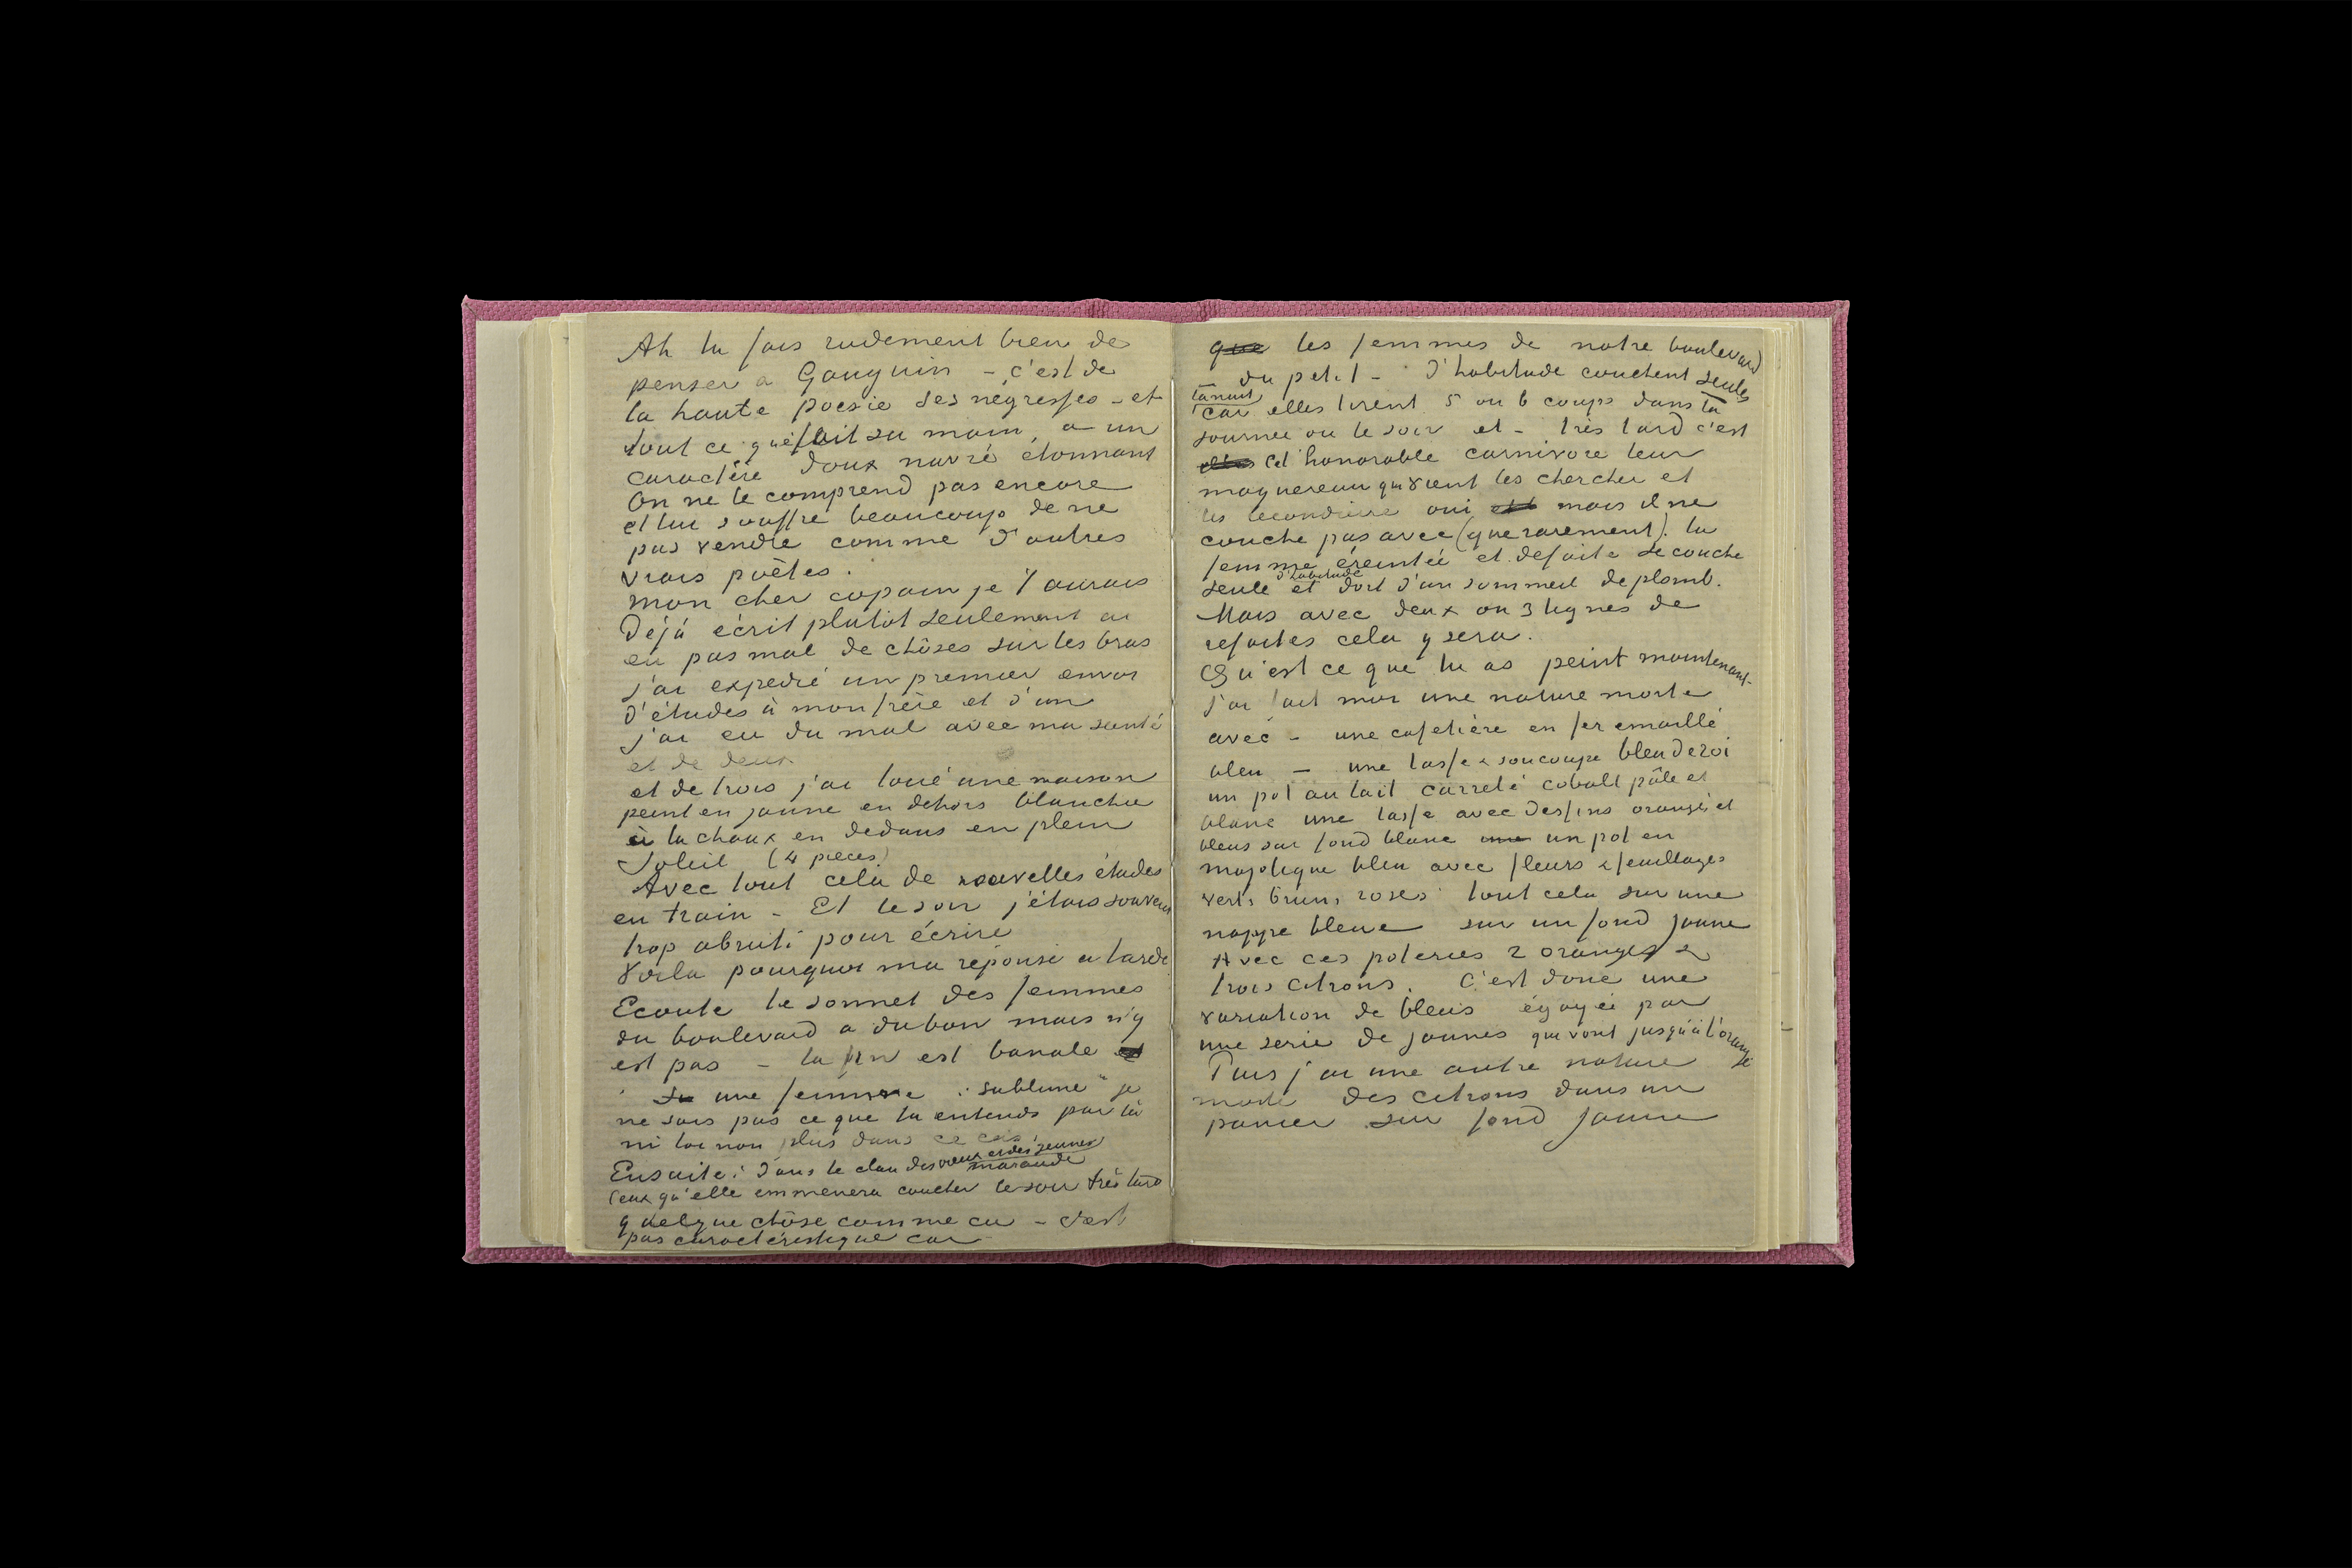 Ah tu fais rudement bien de
penser à Gauguin – c'est de
la haute poesie ses négresses – et
tout ce que fait sa main, a un
caractère doux navré étonnant
On ne le comprend pas encore
et lui souffre beaucoup de ne
pas vendre comme d'autres
vrais poètes.
Mon cher copain je t'aurais
déjà écrit plutôt seulement ai
eu pas mal de chôses sur les bras
j'ai expedié un premier envoi
d'études à mon frère et d'un
j'ai eu du mal avec ma santé
et de deux
et de trois j'ai loué une maison
peint en jaune en dehors blanchie
à la chaux en dedans en plein
Soleil (4 pieces)
Avec tout cela de nouvelles études
en train – Et le soir j'étais souvent
trop abruti pour écrire
Voila pourquoi ma réponse a tardé
Ecoute le sonnet des femmes
du boulevard a du bon mais n'y
est pas – la fin est banale
une femme "sublime" je
ne sais pas ce que tu entends par là
ni toi non plus dans ce cas
Ensuite: Dans le clan des vieux et des jeunes
maraude
Ceux qu'elle emmenera coucher le soir très tard
quelque chôse comme ca – c'est
pas caractéristique car
que les femmes de notre boulevard
– du petit – d'habitude couchent seules
la nuit
car elles tirent 5 ou 6 coups dans la
journee ou le soir et – très tard c'est
cet honorable carnivore leur
maquereau qui vient les chercher et
les reconduire oui mais il ne
couche pas avec (que rarement). la
femme éreintée et defaite se couche
d'habitude
seule et dort d'un sommeil de plomb.
Mais avec deux ou 3 lignes de
refaites cela y sera.
Qu'est ce que tu as peint maintenant
j'ai fait moi une nature morte
avec – une cafetière en fer emaillé
bleu – une tasse & soucoupe bleu de roi
un pot au lait carrelé cobalt pâle et
blanc une tasse avec dessins orangé et
bleus sur fond blanc une un pot en
majolique bleu avec fleurs & feuillages
verts bruns roses tout cela sur une
nappe bleue sur un fond jaune
Avec ces poteries 2 oranges &
trois citrons. C'est donc une
variation de bleus égayée par
une serie de jaunes qui vont jusqu'à l'orangé
Puis j'ai une autre nature
morte des citrons dans un
panier sur fond jaune